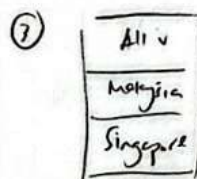 3
All v
Malaysia
Singapore